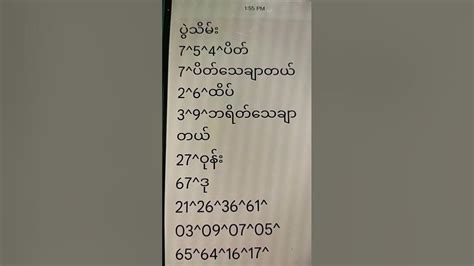 1:55 PM
ပွဲသိမ်း
7^5^4^ပိတ်
7^ပိတ်သေချာတယ်
2^6^ထိပ်
3^9^ဘရိတ်သေချာ
တယ်
27^ဝုန်း
67^ဒု
21^26^36^61^
03^09^07^05^
65^64^16^17^